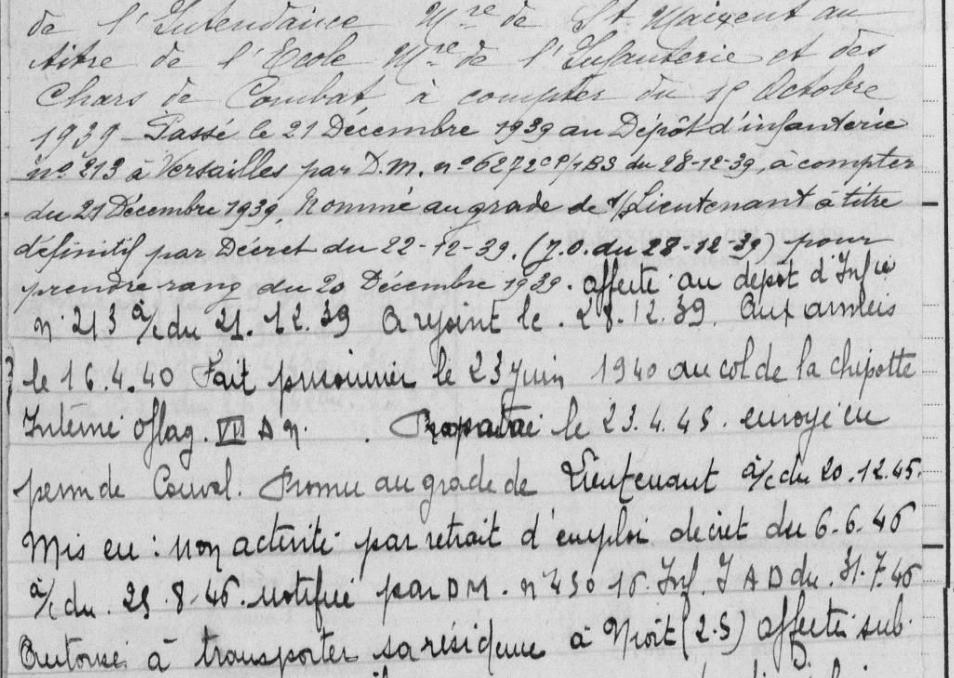 de l'Intendance Mre de St. Maixent au
titre de l'Ecole Mre de l'Infanterie et des
Chars de Combat, à compter du 15 Octobre
1939_ Passé le 21 Décembre 1939 au Dépôt d'infanterie
nº 213 à Versailles par D.M. nº 6272 du 28-12-39, à compter
du 21 Décembre 1939. Nommé au grade de s/Lieutenant à titre
définitif par Décret du 22-12-39. (J.O. du 28-12-39) pour
prendre rang du 20 Décembre 1939. affecté au dépot d'Infie
n° 213 a/c du 21.12.39 A rejoint le . 28.12.39. Aux armées
le 16.4.40 Fait prisonnier le 23 Juin 1940 au col de la chipotte
Interné Oflag. VII A . Rapatrié le 23.4.45. envoyé en
perm de Conval. Promu au grade de Lieutenant a/c du 20.12.45.
Mis en : Non activité par retrait d'emploi décret du 6.6.46
a/c du . 25 .8.46. notifié par D M. n° 450 16. Inf. du . 31.7.46
Autorisé à transporter sa résidence à Niort (2.S) affecté sub.